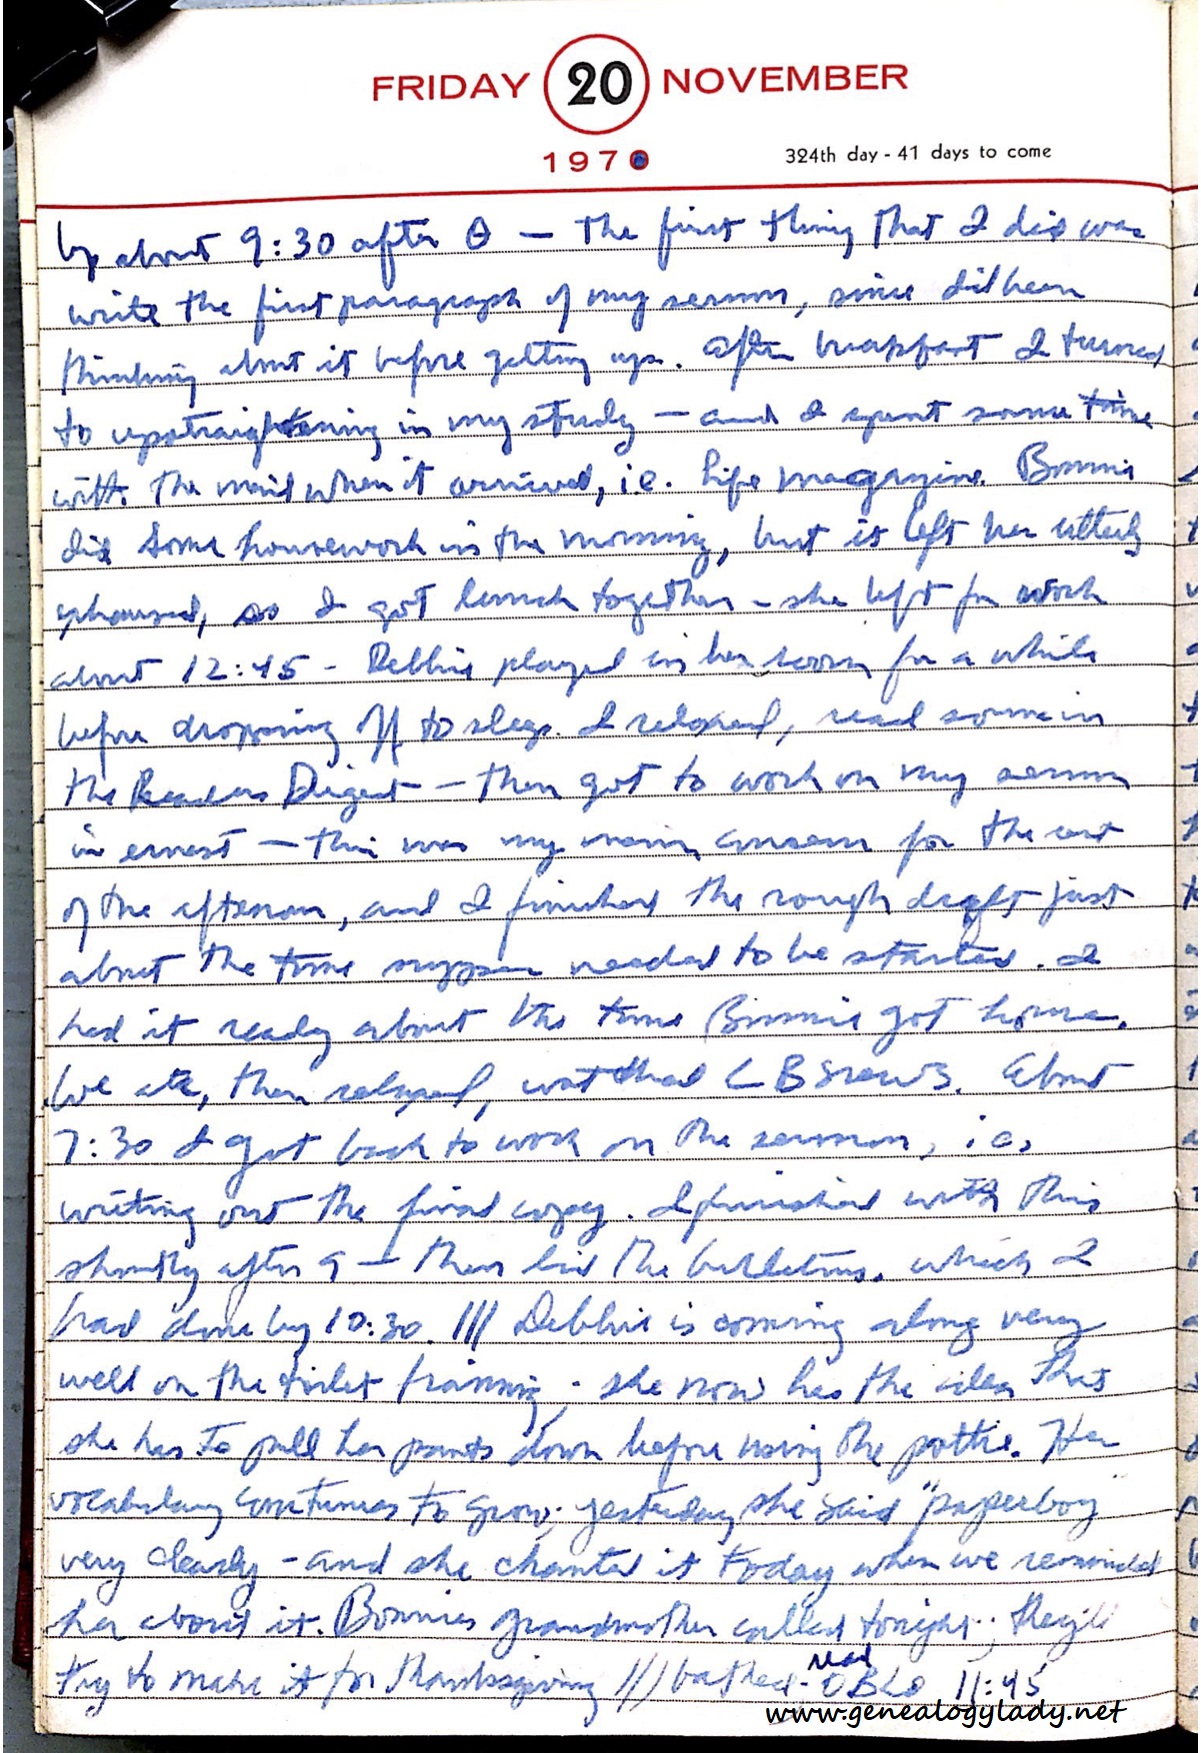 FRIDAY 20 NOVEMBER
1970 324th day - 41 days to come
Up about 9:30 after θ — the first thing that I did was
write the first paragraph of my sermon, since I'd been
thinking about it before getting up. After breakfast I turned
to upstraightening in my study — and I spent some time
with the mail when it arrived, i.e. Life magazine. Bonnie
did some housework in the morning, but it left her utterly
exhaused, so I got lunch together - she left for work
about 12:45 - Debbie played in her room for a while
before dropping off to sleep. I relaxed, read some in
the Readers Digest — then got to work on my sermon
in ernest — this was my main concern for the rest
of the afternoon, and I finished the rough draft just
about the time supper needed to be started. I
had it ready about the time Bonnie got home.
We ate, then relaxed, watched CBS news. About
7:30 I got back to work on the sermon, i.e.
writing out the final copy. I finished with this
shortly after 9 — then did the bulletins, which I
had done by 10:30. /// Debbie is coming along very
well on the toilet training - she now has the idea that
she has to pull her pants down before using the pottie. Her
vocabulary continues to grow; yesterday she said "paperboy"
very clearly - and she chanted it today when we reminded
her about it. Bonnies grandmother called tonight; they'll
try to make it for Thanksgiving /// bathed - read 11:45
www.genealogylady.net